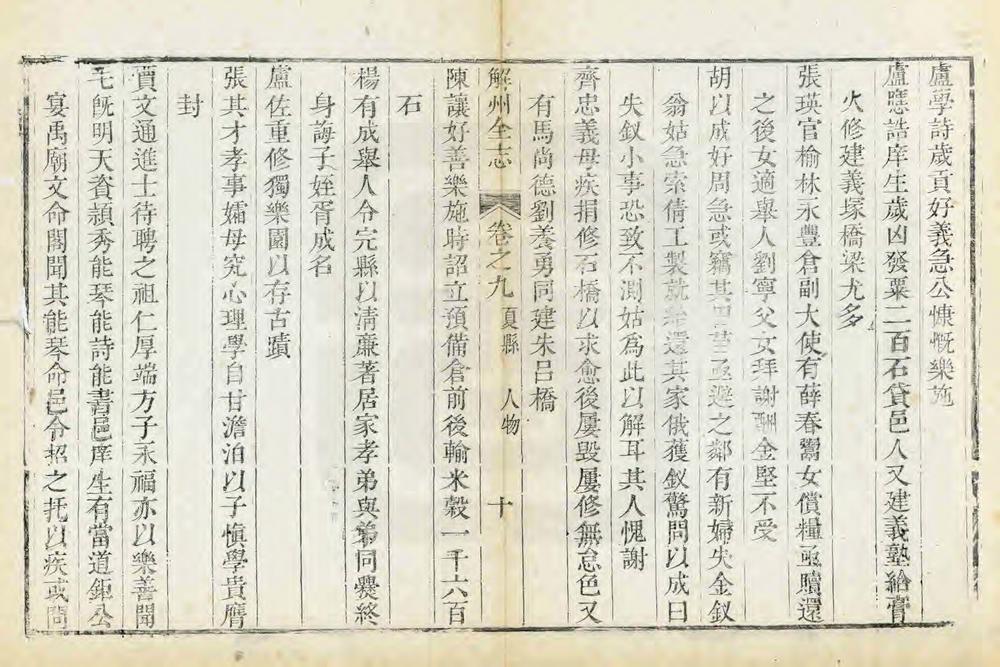 盧學詩歲貢好義急公慷慨樂施
盧應誥庠生歲凶發粟二百石貸邑人又建義塾給膏
火修建義塚橋梁尤多
張瑛官榆林永豐倉副大使有薛春鬻女償糧亟贖還
之後女適舉人劉寧父女拜謝酬金堅不受
胡以成好周急或竊其田亟避之鄰有新婦失金釵
翁姑急索倩工製就還其家俄獲釵驚問以成曰
失釵小事恐致不測姑為此以解耳其人愧謝
齊忠義母疾捐修石橋以求愈後屢毀屢修無怠色又
有馬尚德劉養勇同建朱呂橋
解州全志 卷之九 夏縣 人物 十
陳讓好善樂施時詔立預備倉前後輸米穀一千六百
石
楊有成舉人令完縣以清廉著居家孝弟與弟同爨終
身誨子姪胥成名
盧佐重修獨樂園以存古蹟
張其才孝事孀母究心理學自甘澹泊以子愼學貴膺
封
賈文通進士待聘之祖仁厚端方子永福亦以樂善聞
毛旣明天資頴秀能琴能詩能書邑庠生有當道鉅公
宴禹廟文命閣聞其能琴命邑令招之托以疾或問